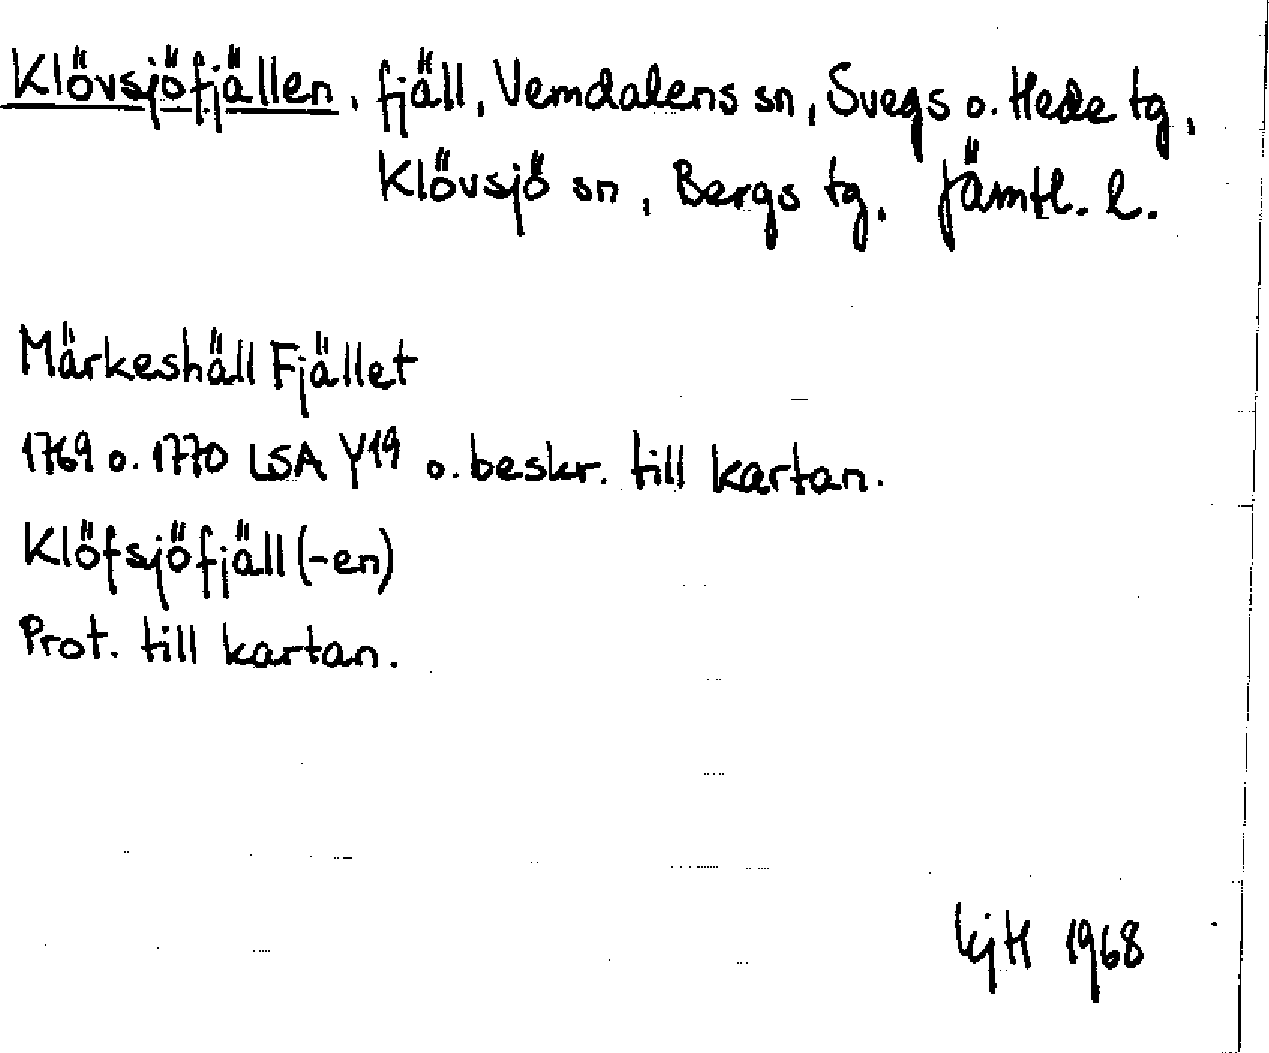 Klövsjöfjällen, fjäll, Vemdalens sn, Svegs o. Hede tg,
Klövsjö sn, Bergs tg. Jämtl. l.
Märkeshäll Fjället
1769 o. 1770 LSA Y19 o. beskr. till kartan.
Klöfsjöfjäll (-en)
Prot. till kartan.
1968